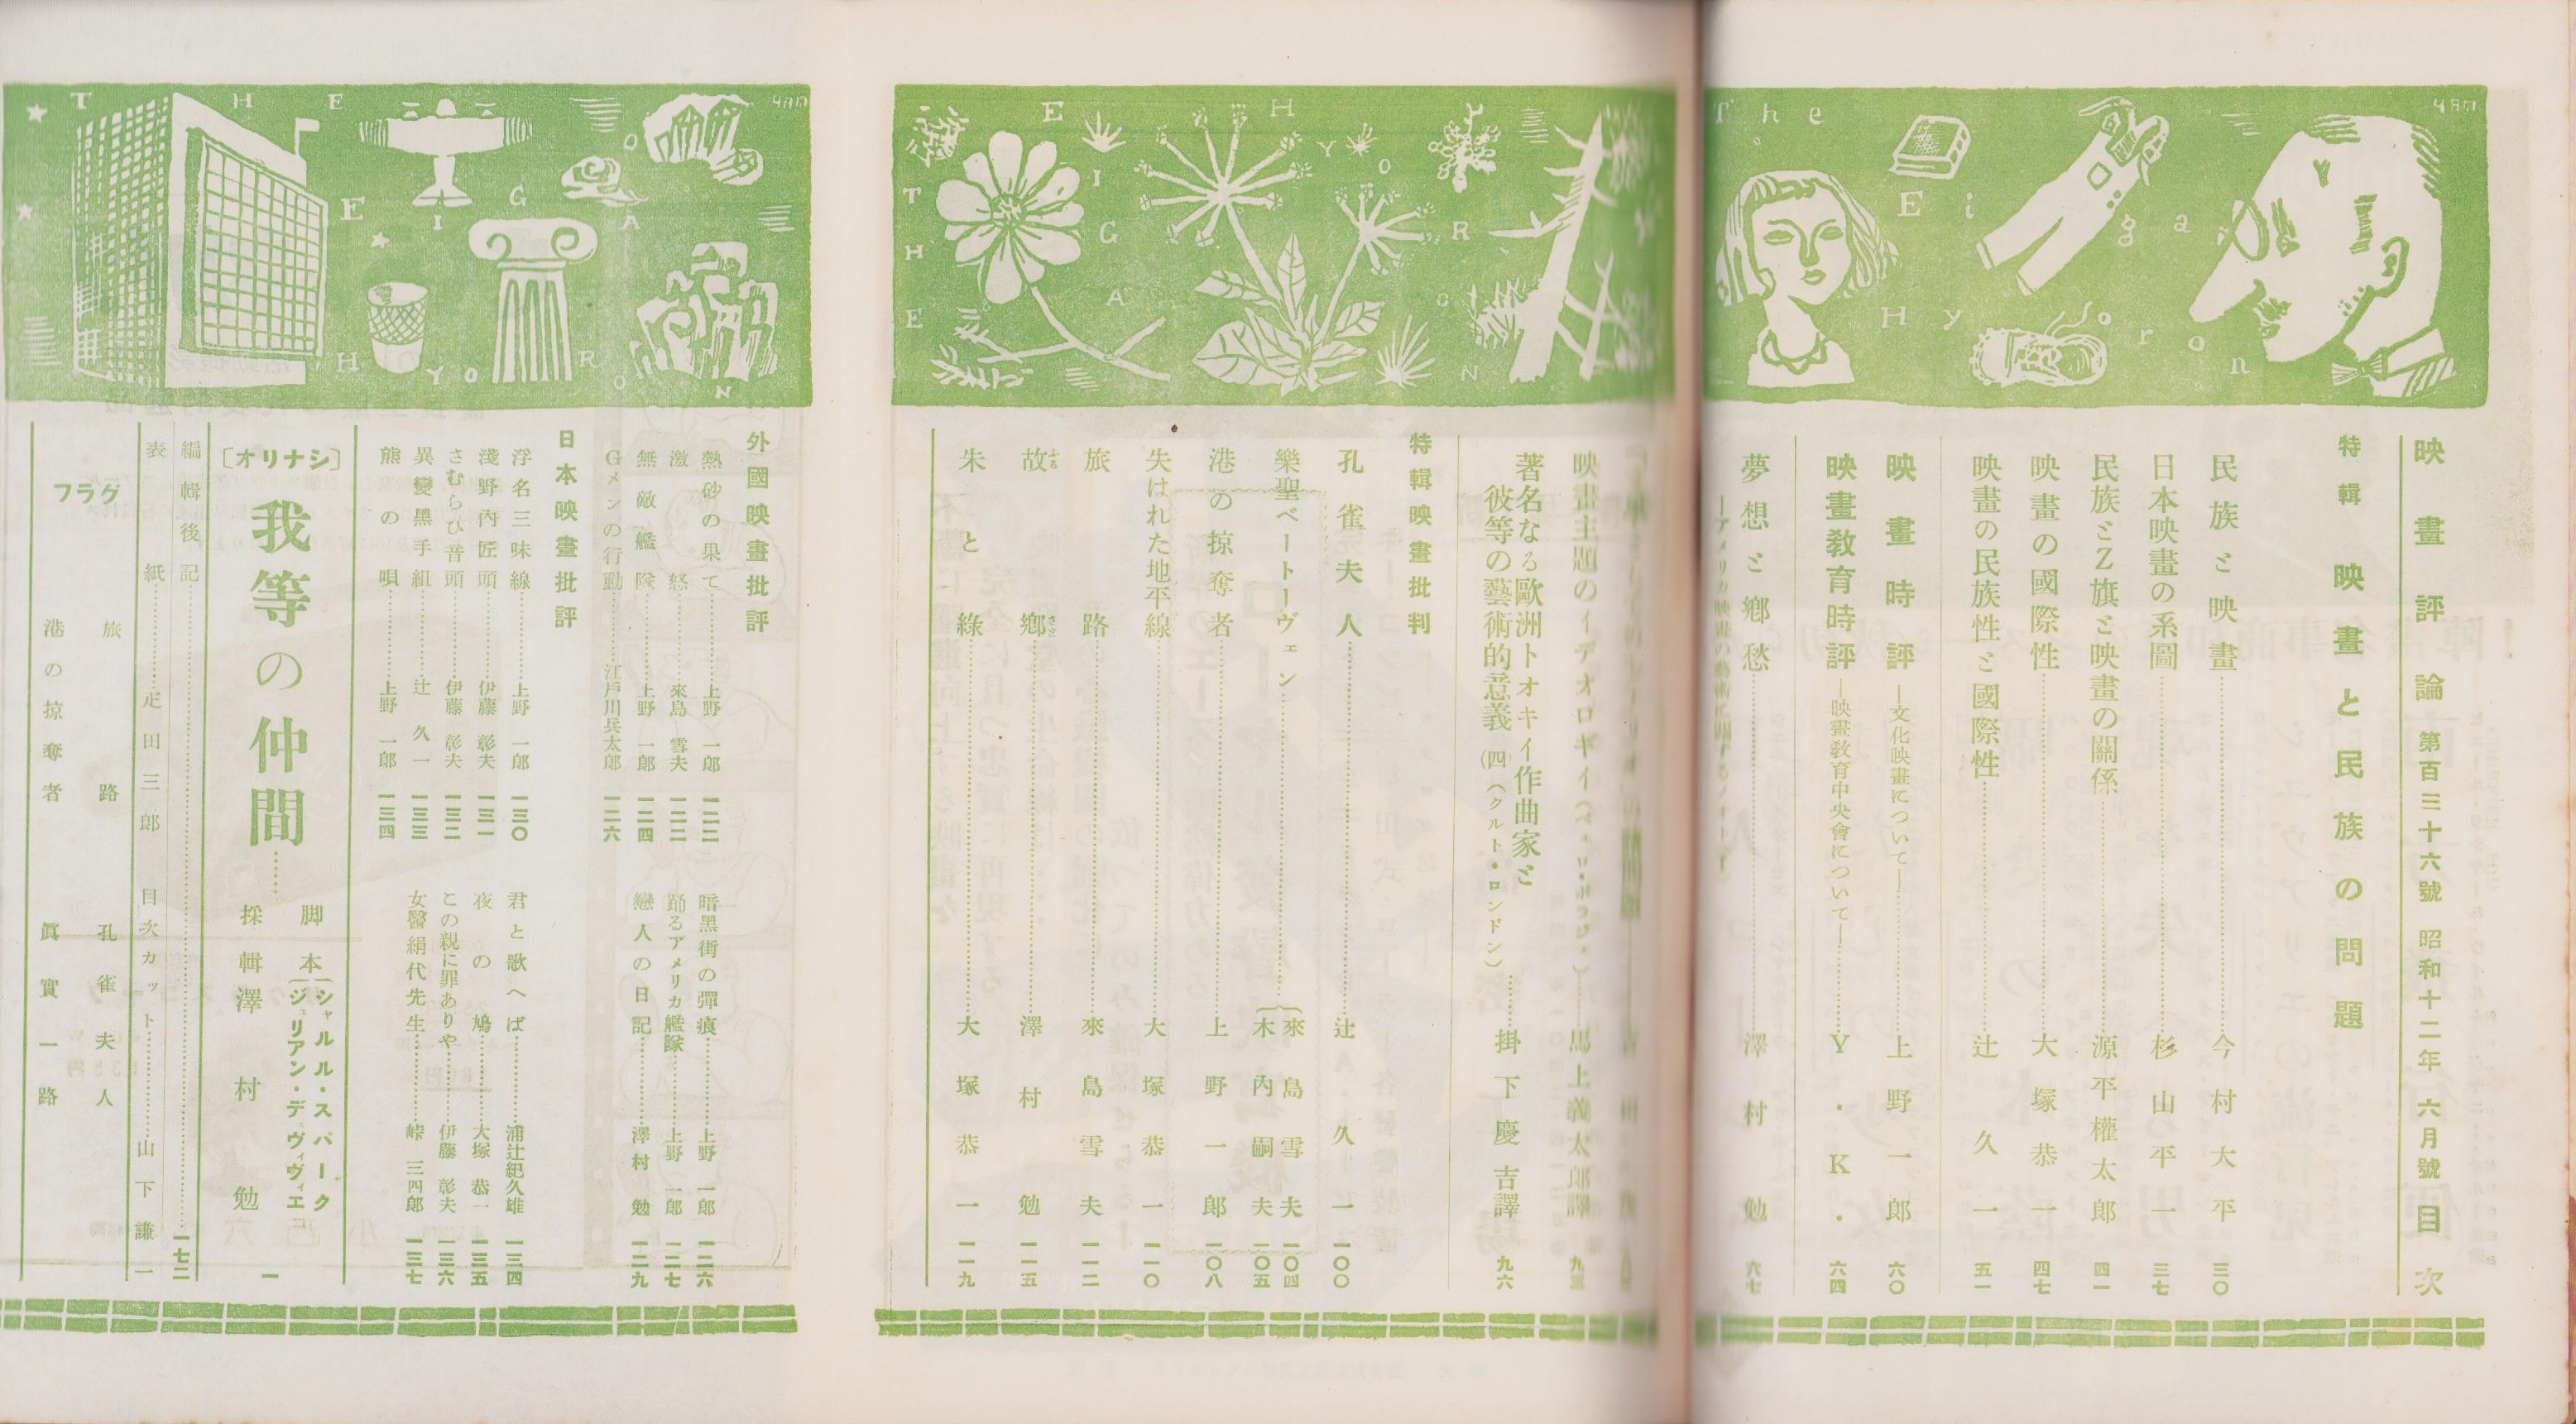 映畫評論 第百三十六號 昭和十二年 六月號 目次
特輯 映畫と民族の問題
民族と映畫 今村大平 三〇
日本映畫の系圖 杉山平一 三七
民族とZ旗と映畫の關係 源平權太郎 四一
映畫の國際性 大塚恭一 四七
映畫の民族性と國際性 辻久一 五一
映畫時評 ―文化映畫について― 上野一郎 六〇
映畫教育時評 ―映畫教育中央會について― Y・K・ 六四
夢想と鄕愁 澤村勉 六七
―アメリカ映畫の藝術に關するノート―
映畫主題のイデオロギイ 馬上義太郎譯 九三
著名なる歐洲トオキイ作曲家と
彼等の藝術的意義 (四) (クルト・ロンドン) 掛下慶吉譯 九六
特輯映畫批判
孔雀夫人 辻久一 一〇〇
樂聖ベートーヴェン {來島雪夫 一〇四
木內嗣夫 一〇五
港の掠奪者 上野一郎 一〇八
失はれた地平線 大塚恭一 一一〇
旅路 來島雪夫 一一二
故鄕 澤村勉 一一五
朱と綠 大塚恭一 一一九
外國映畫批評
熱砂の果て 上野一郎 一二二
激怒 來島雪夫 一二二
無敵艦隊 上野一郎 一二四
Gメンの行動 江戶川兵太郎 一二六
暗黑街の彈痕 上野一郎 一二六
踊るアメリカ艦隊 上野一郎 一二七
戀人の日記 澤村勉 一二九
日本映畫批評
浮名三味線 上野一郎 一三〇
淺野內匠頭 伊藤彰夫 一三一
さむらひ音頭 伊藤彰夫 一三二
異變黑手組 辻久一 一三三
熊の唄 上野一郎 一三四
君と歌へば 浦辻紀久雄 一三四
夜の鳩 大塚恭一 一三五
この親に罪ありや 伊藤彰夫 一三六
女醫絹代先生 峠三四郎 一三七
〔シナリオ〕
我等の仲間
脚本 (シャルル・スパーク
ジュリアン・デュヴィヴィエ
採輯 澤村勉 一
編輯後記 一七二
表紙 疋田三郎 目次カット 山下謙一
グラフ
旅路 孔雀夫人
港の掠奪者 眞實一路
The Eiga Hyoron
THE EIGA HYORON
THE EIGA HYORON